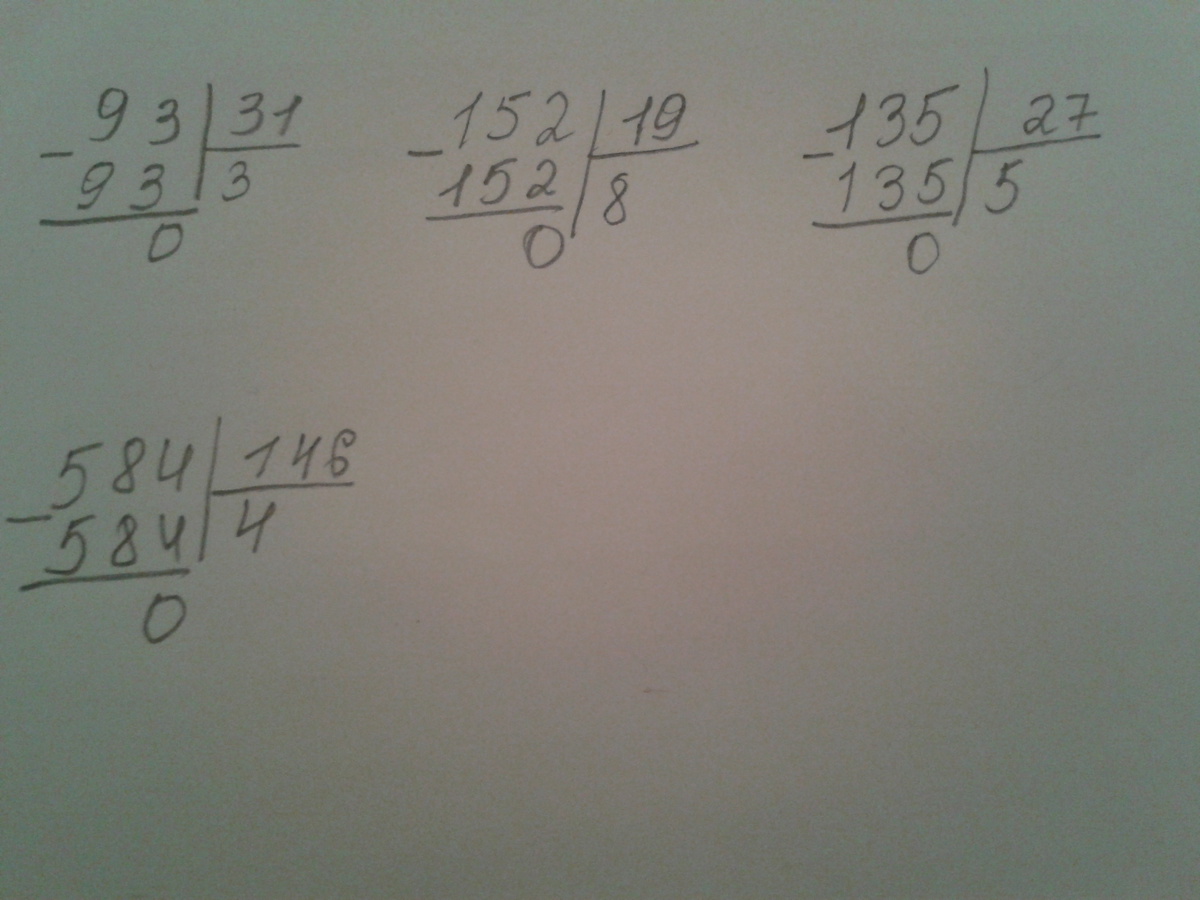 93 31
- 93 3
0
152 19
- 152 8
0
135 27
- 135 5
0
584 146
- 584 4
0